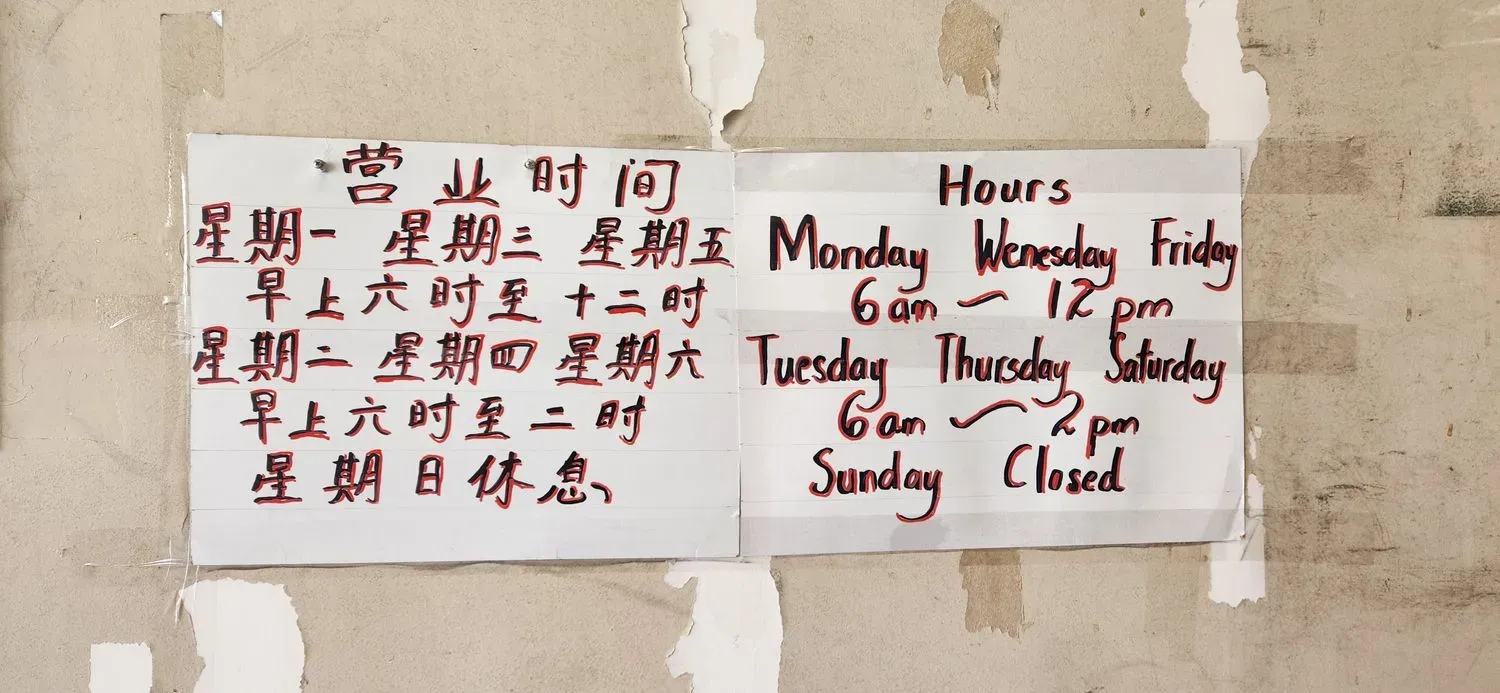 营业时间
星期一 星期三 星期五
早上六时至十二时
星期二 星期四 星期六
早上六时至二时
星期日休息
Hours
Monday Wenesday Friday
6 am ~ 12 pm
Tuesday Thursday Saturday
6 am ~ 2 pm
Sunday Closed